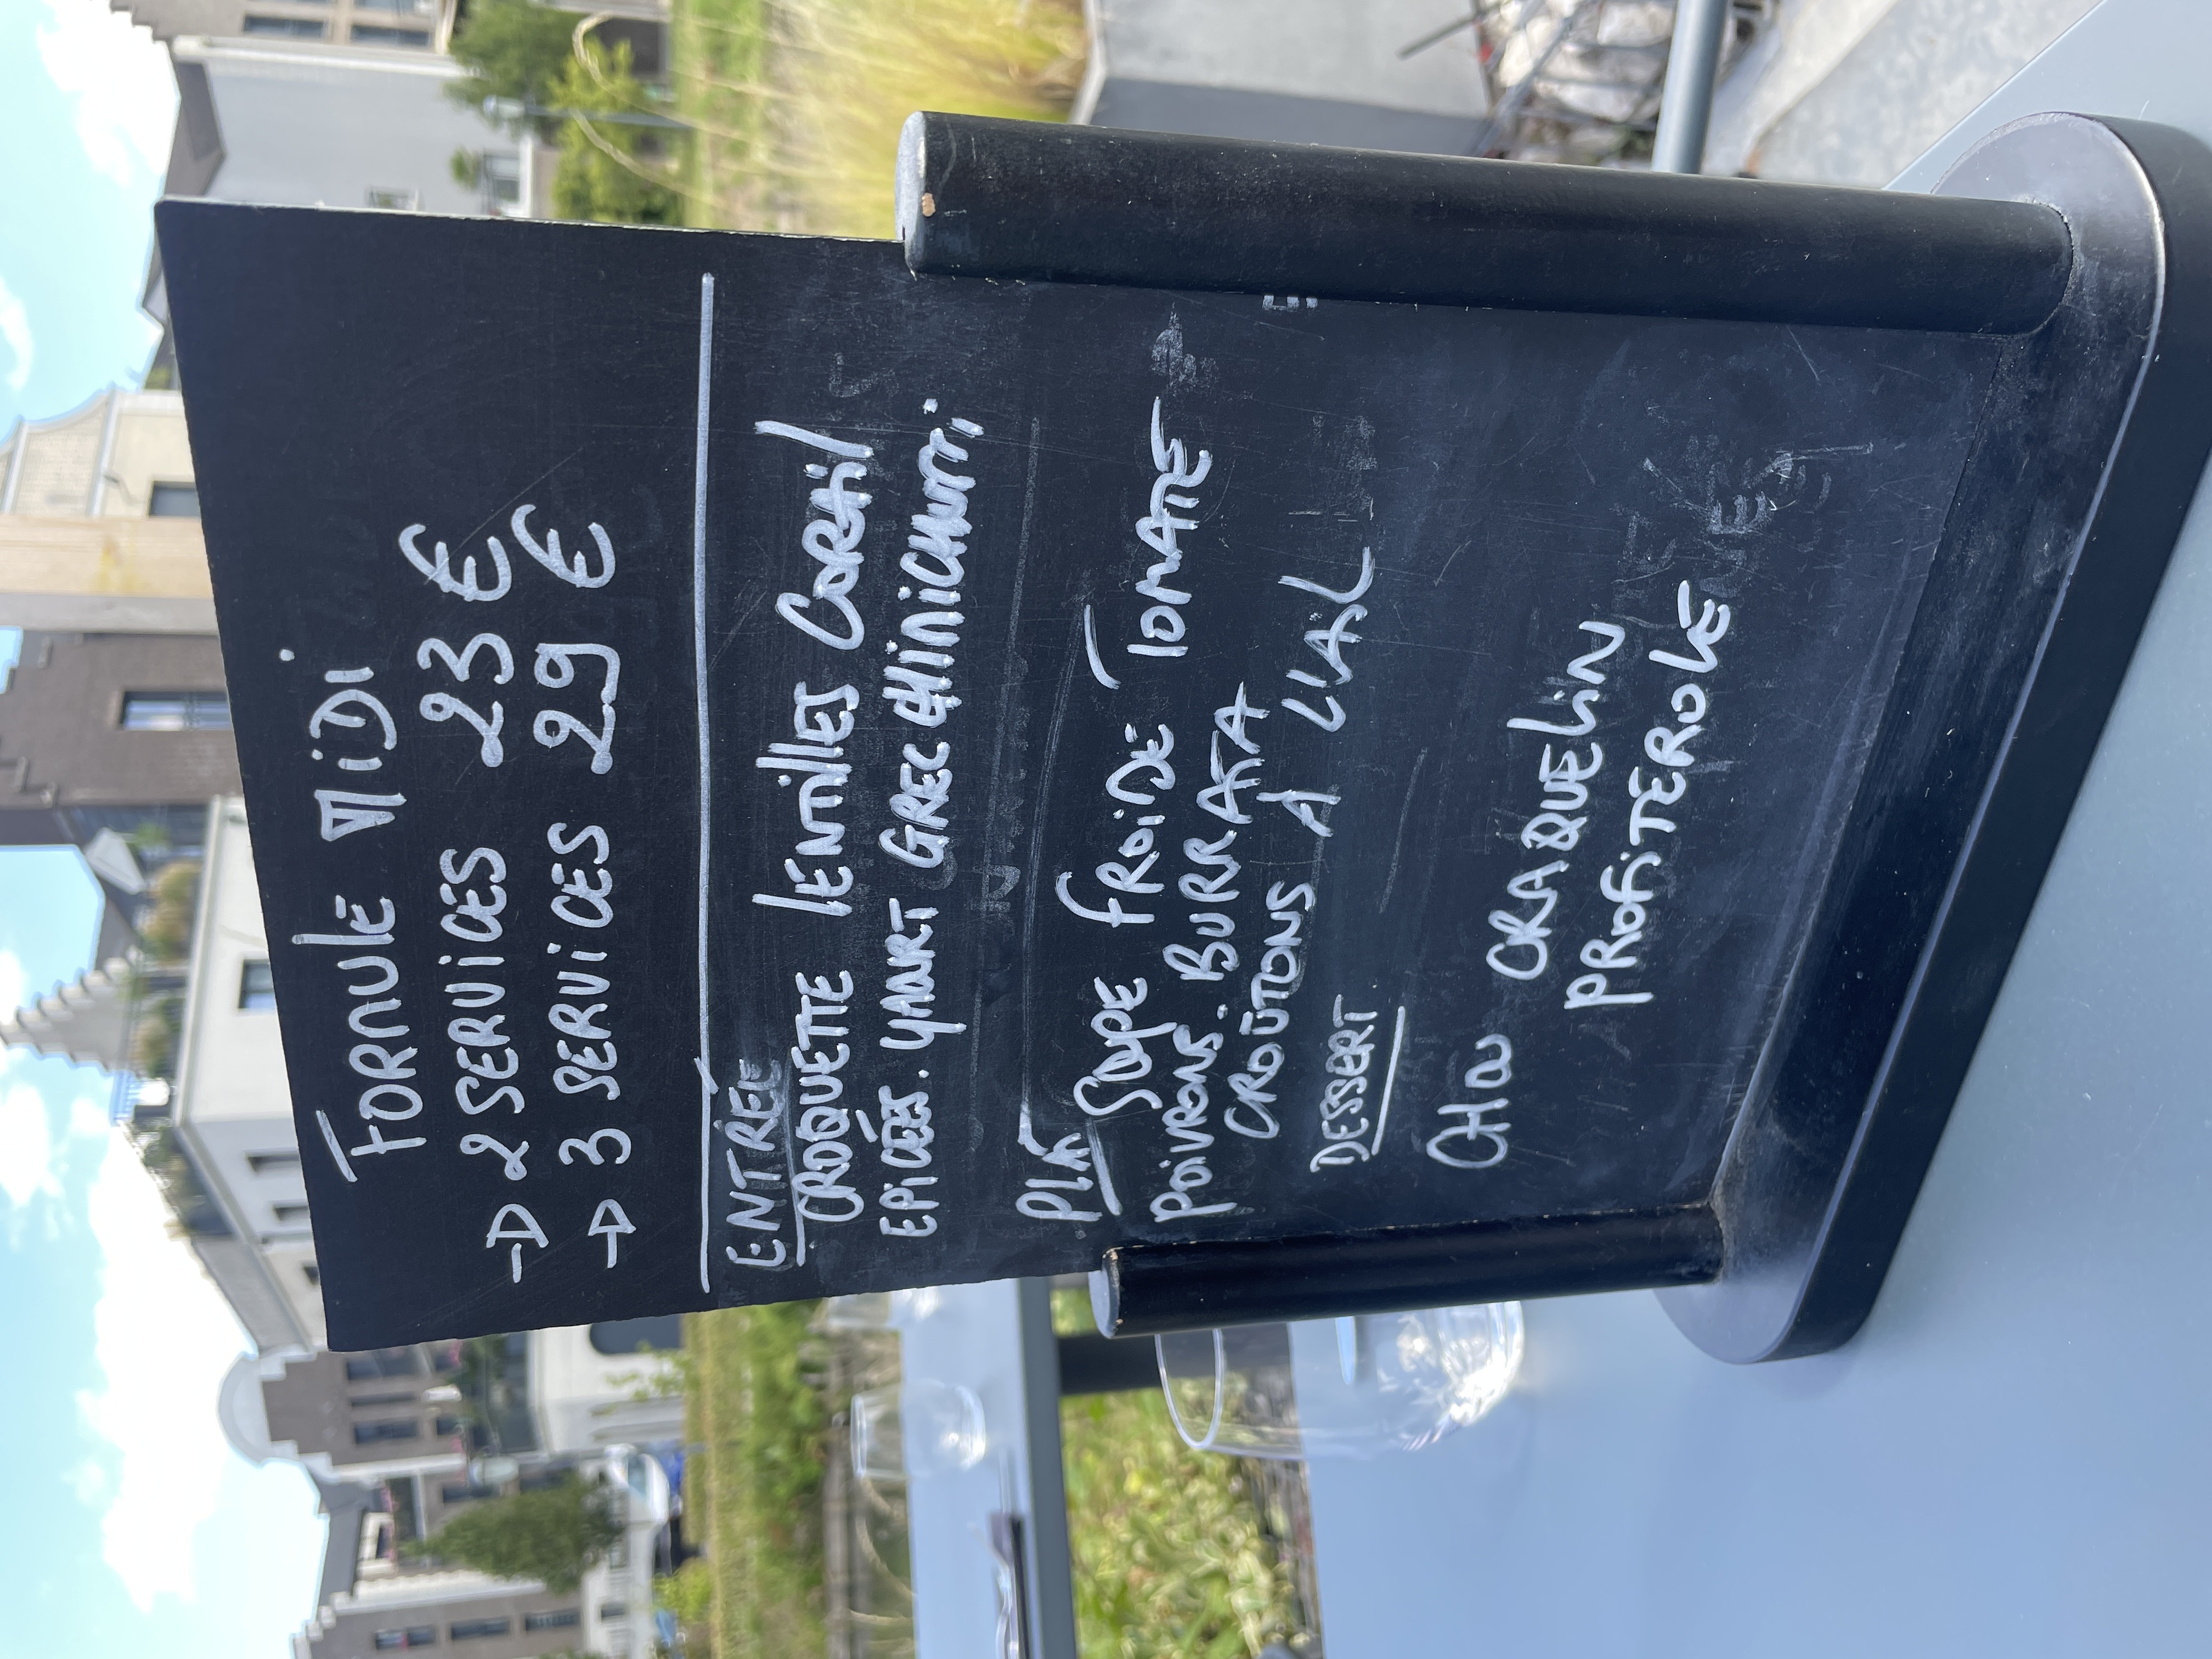 FORMULE MIDI
→ 2 SERVICES 23 €
→ 3 SERVICES 29 €
ENTRÉE
CROQUETTE lENTillES CORAil
EPICÉES. YAOURT GREC CHIMICHURRI.
PLAT
SOUPE FROIDE TOMATE
POIVRONS. BURRATA
CROÛTONS À L'AIL
DESSERT
CHOU CRAQUELIN
PROFITEROLE